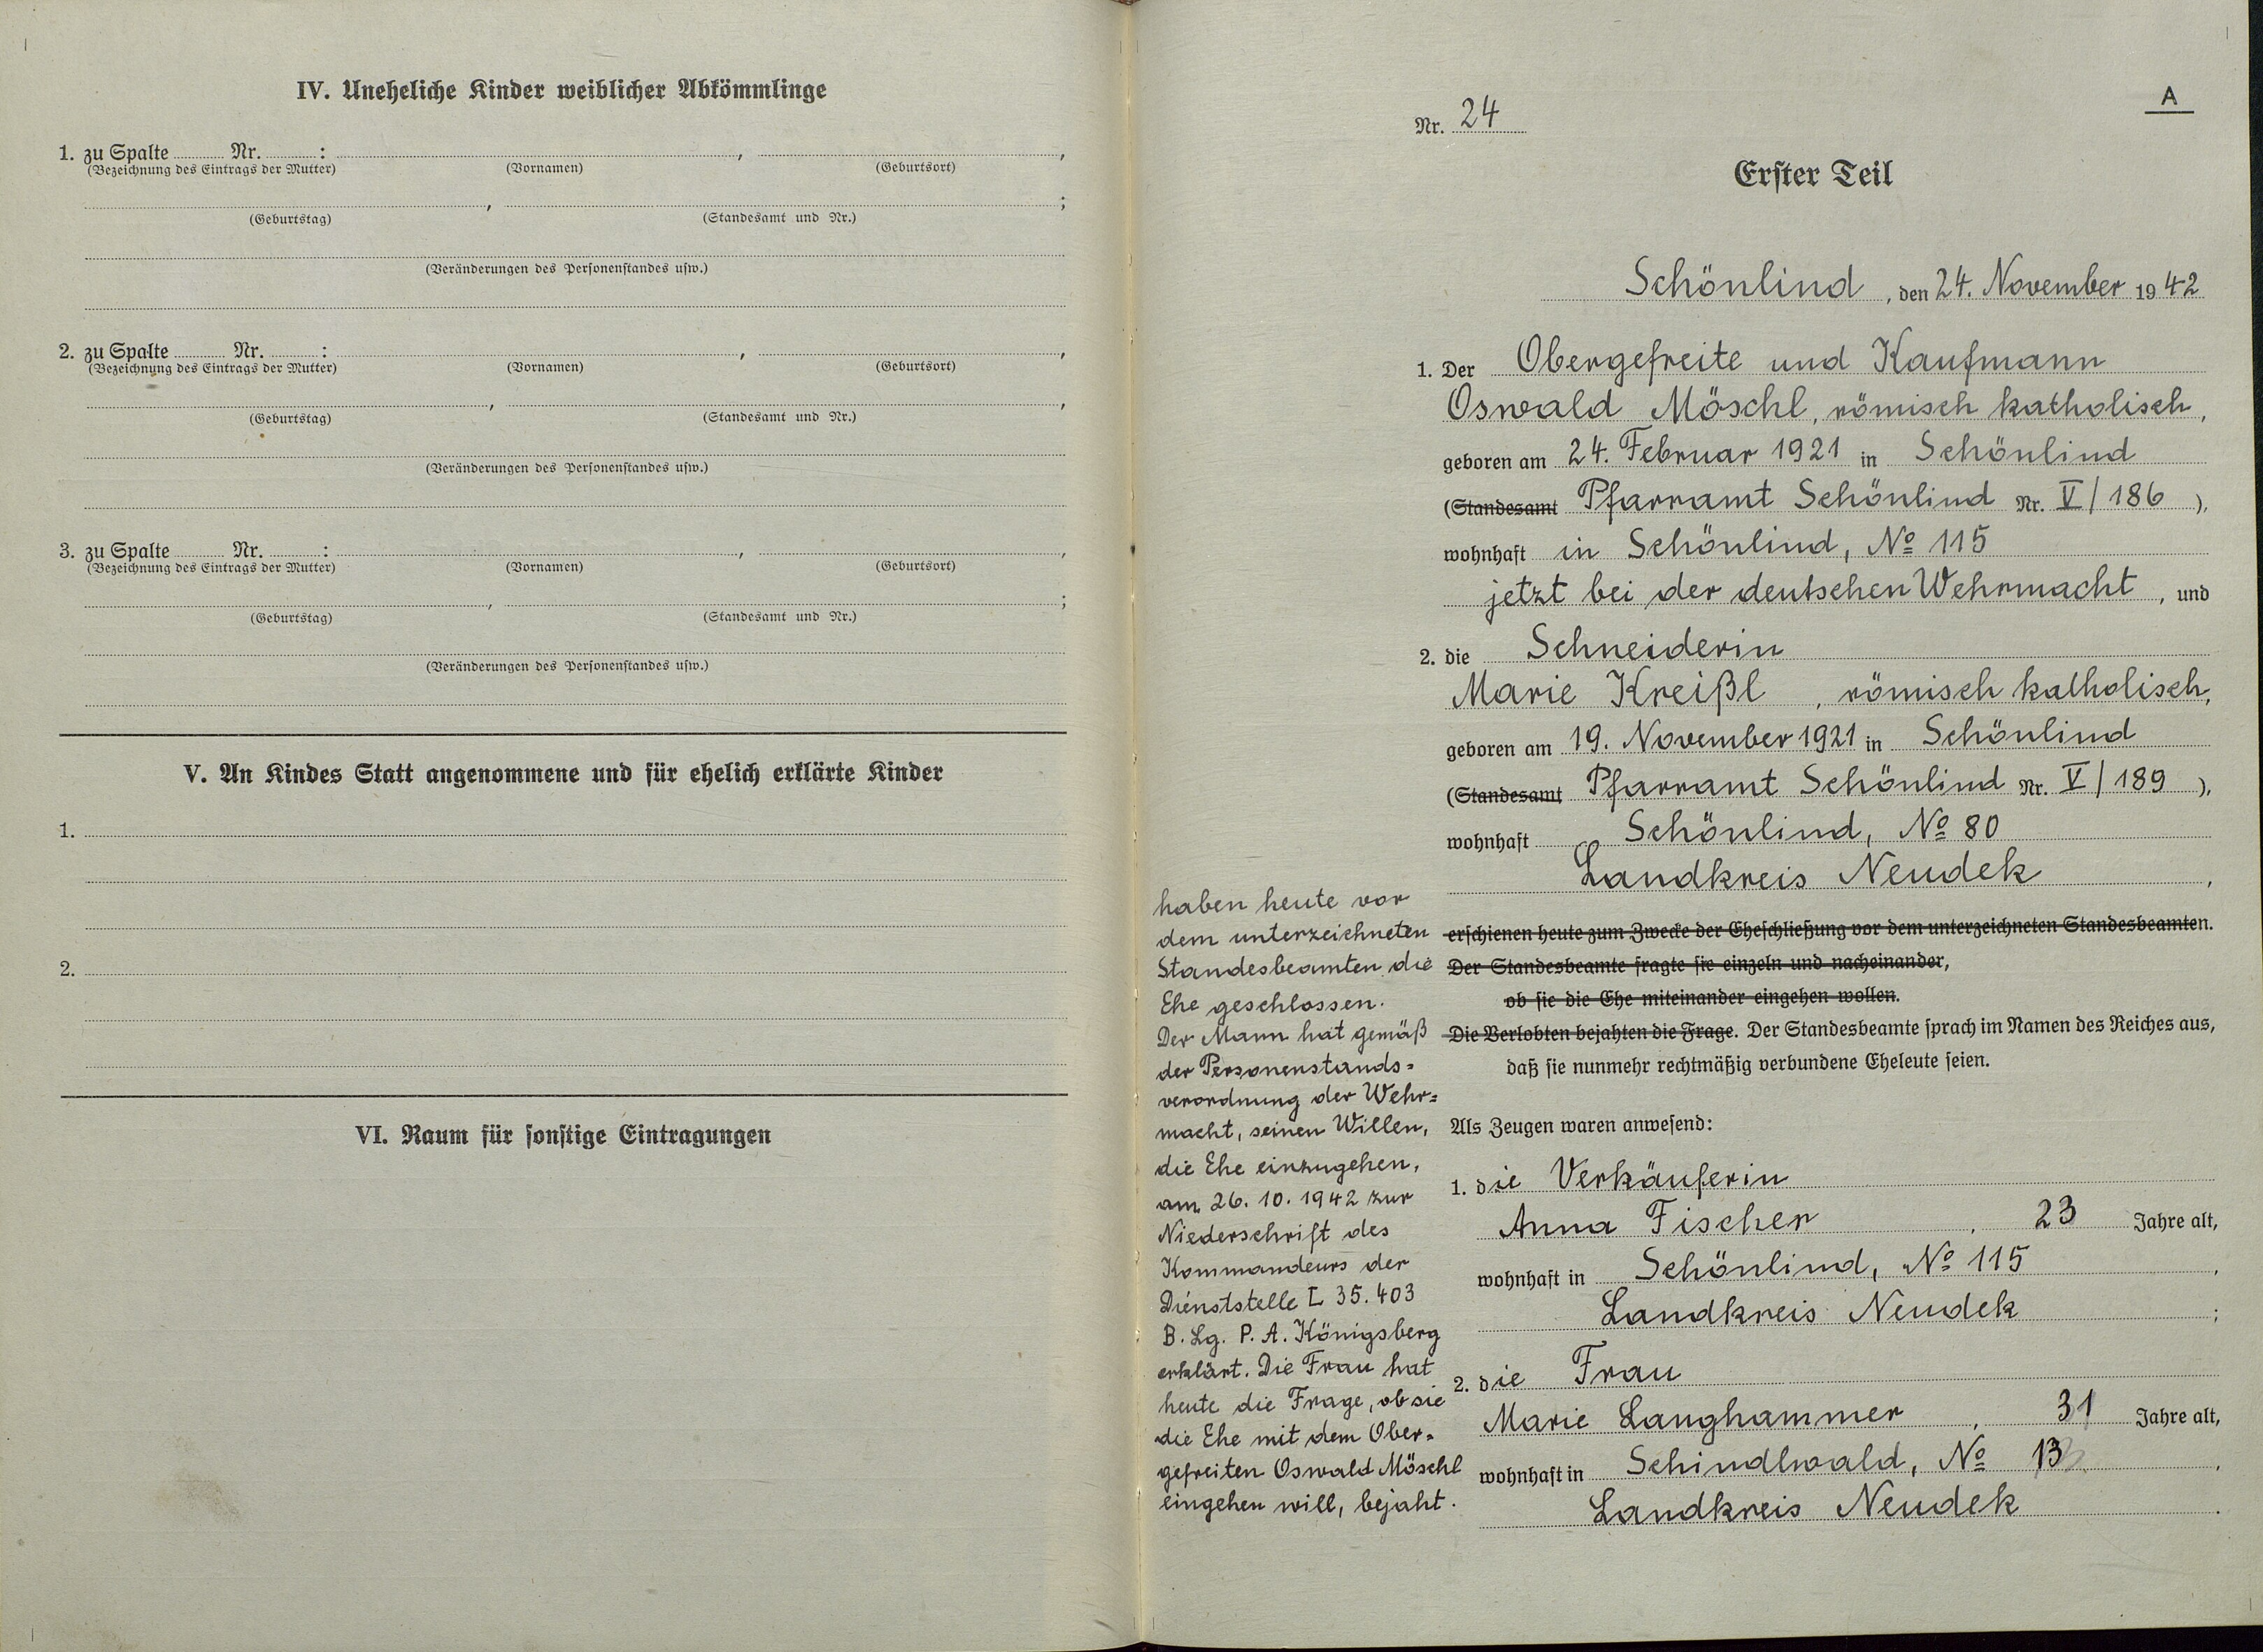 IV. Uneheliche Kinder weiblicher Abkömmlinge
1. zu Spalte Nr. : , ,
(Bezeichnung des Eintrags der Mutter) (Vornamen) (Geburtsort)
, ;
(Geburtstag) (Standesamt und Nr.)
(Veränderungen des Personenstandes usw.)
2. zu Spalte Nr. : , ,
(Bezeichnung des Eintrags der Mutter) (Vornamen) (Geburtsort)
, ,
(Geburtstag) (Standesamt und Nr.)
(Veränderungen des Personenstandes usw.)
3. zu Spalte Nr. : , ,
(Bezeichnung des Eintrags der Mutter) (Vornamen) (Geburtsort)
, ;
(Geburtstag) (Standesamt und Nr.)
(Veränderungen des Personenstandes usw.)
V. An Kindes Statt angenommene und für ehelich erklärte Kinder
1.
2.
VI. Raum für sonstige Eintragungen
A
Nr. 24
Erster Teil
Schönlind, den 24. November 1942
1. Der Obergefreite und Kaufmann
Oswald Möschl, römisch katholisch,
geboren am 24. Februar 1921 in Schönlind
(Standesamt Pfarramt Schönlind Nr. V/186),
wohnhaft in Schönlind, No 115
jetzt bei der deutschen Wehrmacht, und
2. die Schneiderin
Marie Kreißl, römisch katholisch,
geboren am 19. November 1921 in Schönlind
(Standesamt Pfarramt Schönlind Nr. V/189),
wohnhaft Schönlind, No 80
Landkreis Neudek,
erschienen heute zum Zwecke der Eheschließung vor dem unterzeichneten Standesbeamten.
Der Standesbeamte fragte sie einzeln und nacheinander,
ob sie die Ehe miteinander eingehen wollen.
Die Verlobten bejahten die Frage. Der Standesbeamte sprach im Namen des Reiches aus,
daß sie nunmehr rechtmäßig verbundene Eheleute seien.
haben heute vor
dem unterzeichneten
Standesbeamten die
Ehe geschlossen.
Der Mann hat gemäß
der Personenstands=
verordnung der Wehr=
macht, seinen Willen,
die Ehe einzugehen,
am 26. 10. 1942 zur
Niederschrift des
Kommandeurs der
Dienststelle L 35.403
B. Lg. P. A. Königsberg
erklärt. Die Frau hat
heute die Frage, ob sie
die Ehe mit dem Ober=
gefreiten Oswald Möschl
eingehen will, bejaht.
Als Zeugen waren anwesend:
1. die Verkäuferin
Anna Fischer, 23 Jahre alt,
wohnhaft in Schönlind, No 115,
Landkreis Neudek;
2. die Frau
Marie Langhammer, 31 Jahre alt,
wohnhaft in Schindlwald, No 13,
Landkreis Neudek.